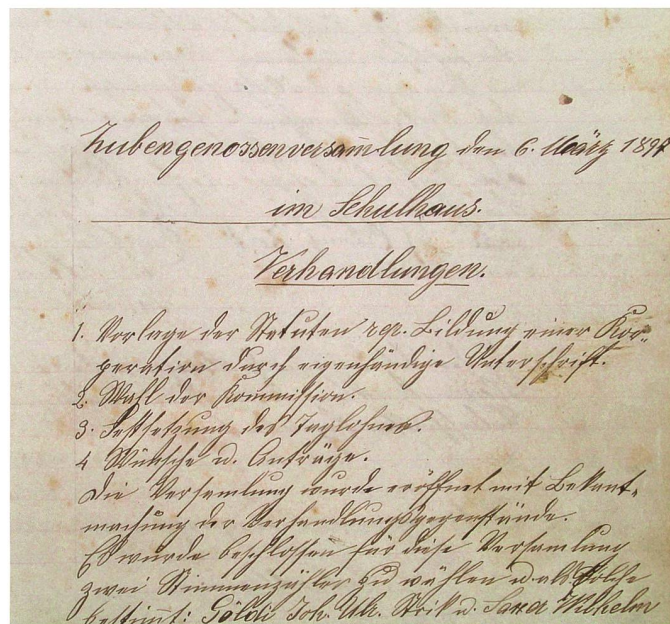 Hubengenossenversam̄lung den 6. März 189
im Schulhaus.
Verhandlungen.
1. Vorlage der Statuten resp. Bildung einer Kor-
peration durch eigenhändige Unterschrift.
2. Wahl der Kommission.
3. Festsetzung des Taglohnes.
4 Wünsche u. Anträge.
Die Versamlung wurde eröffnet mit Bekant-
machung der Verhandlungsgegenstände.
Es wurde beschlossen für diese Versamlung
zwei Stimmenzähler zu wählen u. als solche
bestimt: Göldi Joh. Ulr. u. Wilhelm